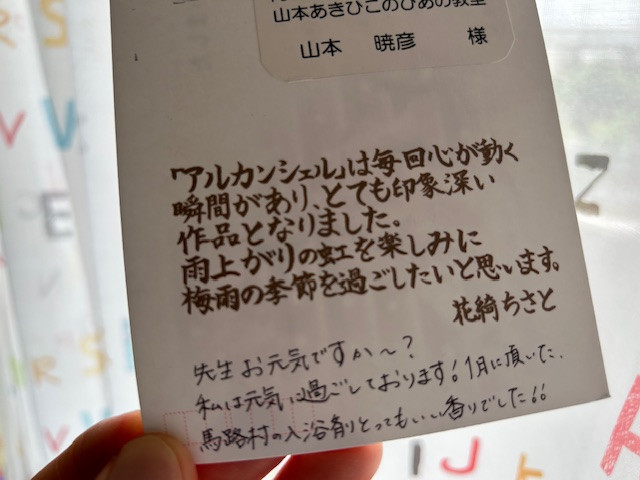 山本あきひこのぴあの教室
山本 暁彦 様
「アルカンシェル」は毎回心が動く
瞬間があり、とても印象深い
作品となりました。
雨上がりの虹を楽しみに
梅雨の季節を過ごしたいと思います。
花綺ちさと
先生お元気ですか〜?
私は元気に過ごしております!1月に頂いた、
馬路村の入浴剤とってもいい香りでした!!
E
Z
I J R